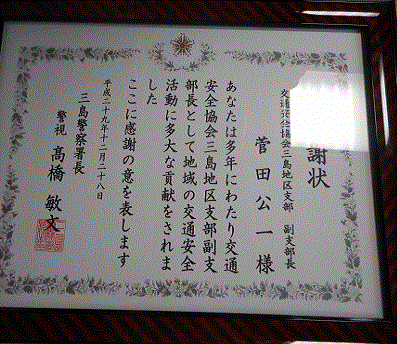 謝状
交通安全協会三島地区支部 副支部長
菅田公一様
あなたは多年にわたり交通
安全協会三島地区支部副支
部長として地域の交通安全
活動に多大な貢献をされま
した
ここに感謝の意を表します
平成二十九年十二月二十八日
三島警察署長
警視 髙橋敏文